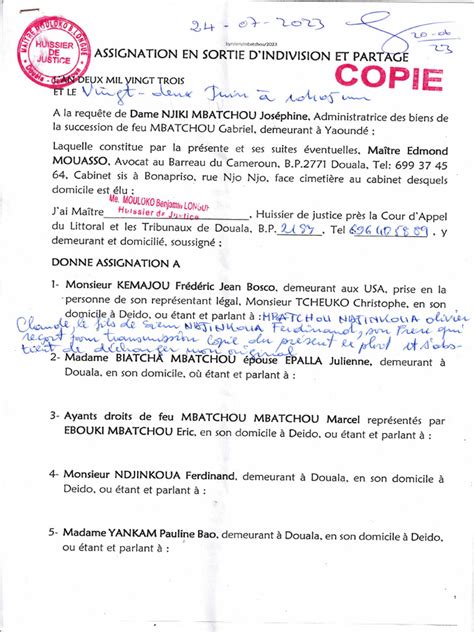 24-07-2023
20-06
23
MAITRE MOULOKO B. LONGUE
HUISSIER
DE
JUSTICE
Douala
ASSIGNATION EN SORTIE D'INDIVISION ET PARTAGE
COPIE
L'AN DEUX MIL VINGT TROIS
ET LE Vingt-deux Juin à
A la requête de Dame NJIKI MBATCHOU Joséphine, Administratrice des biens de
la succession de feu MBATCHOU Gabriel, demeurant à Yaoundé ;
Laquelle constitue par la présente et ses suites éventuelles, Maître Edmond
MOUASSO, Avocat au Barreau du Cameroun, B.P.2771 Douala, Tel: 699 37 45
64, Cabinet sis à Bonapriso, rue Njo Njo, face cimetière au cabinet desquels
domicile est élu ;
Me. MOULOKO Benjamin LONGUE
Huissier de Justice
J'ai Maître, Huissier de justice près la Cour d'Appel
du Littoral et les Tribunaux de Douala, B.P. 2187, Tel 696405889, y
demeurant et domicilié, soussigné ;
DONNE ASSIGNATION A
1- Monsieur KEMAJOU Frédéric Jean Bosco, demeurant aux USA, prise en la
personne de son représentant légal, Monsieur TCHEUKO Christophe, en son
domicile à Deido, ou étant et parlant à : MBATCHOU NDJINKOUA olivier
Claude, le fils de sieur NDJINKOUA Ferdinand, son frère qui
reçoit pour transmission copie du présent exploit et s'abs-
tient de décharger mon original
2- Madame BIATCHA MBATCHOU épouse EPALLA Julienne, demeurant à
Douala, en son domicile, où étant et parlant à :
3- Ayants droits de feu MBATCHOU MBATCHOU Marcel représentés par
EBOUKI MBATCHOU Eric, en son domicile à Deido, ou étant et parlant à :
4- Monsieur NDJINKOUA Ferdinand, demeurant à Douala, en son domicile à
Deido, ou étant et parlant à :
5- Madame YANKAM Pauline Bao, demeurant à Douala, en son domicile à Deido,
ou étant et parlant à :